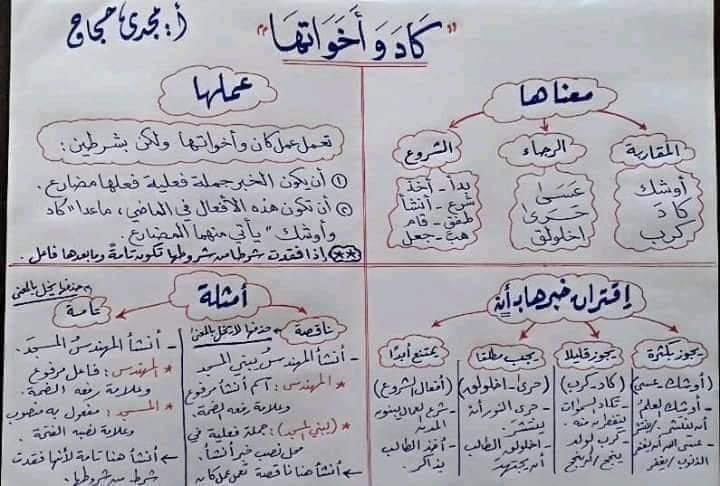 "كَادَ وَ أَخَوَاتهَا"
أ: مجدى حجاج
معناها
المقاربة
أوشك
كادَ
كرب
الرجاء
عَسَى
حَرَى
اخلولق
الشروع
بدأ - أخذ
شرع - أنشأ
طفق - قام
هبَّ - جعل
عملها
تعمل عمل كان وأخواتها ولكن بشرطين :
① أن يكون الخبر جملة فعلية فعلها مضارع .
② أن تكون هذه الأفعال في الماضي ، ماعدا "كاد
وأوشك" يأتي منهما المضارع .
** إذا فقدت شرطا من شروطها تكون تامة وما بعدها فاعل .
إقتران خبرها بـ أن
يجوز بكثرة
(أوشك - عسى)
- أوشك العلم
أن ينتشر / ينتشر
- عسى الله أن يغفر
الذنوب / يغفر
يجوز قليلا
(كاد - كرب)
- تكاد السموات
يتفطرن منه .
- كرب الولد
ينجح / أن ينجح
يجب مطلقا
(حرى - اخلولق)
- حرى النور أن
ينتشر .
- اخلولق الطالب
أن يجتهد
يمتنع أبدًا
(أفعال الشروع)
- شرع العمال يبنون
المدن
- أخذ الطالب
يذاكر .
أمثلة
ناقصة
حذفها لا يخل بالمعنى
- أنشأ المهندسُ يبني المسجد
* المهندس : اسم أنشأ مرفوع
وعلامة رفعه الضمة .
* (يبني المسجد) : جملة فعلية في
محل نصب خبر أنشأ .
← أنشأ هنا ناقصة تعمل عمل كان
حذفها يخل بالمعنى
تامة
- أنشأ المهندسُ المسجدَ .
* المهندس : فاعل مرفوع
وعلامة رفعه الضمة .
* المسجد : مفعول به منصوب
وعلامة نصبه الفتحة .
← أنشأ هنا تامة لأنها فقدت
شرط من شروطها .